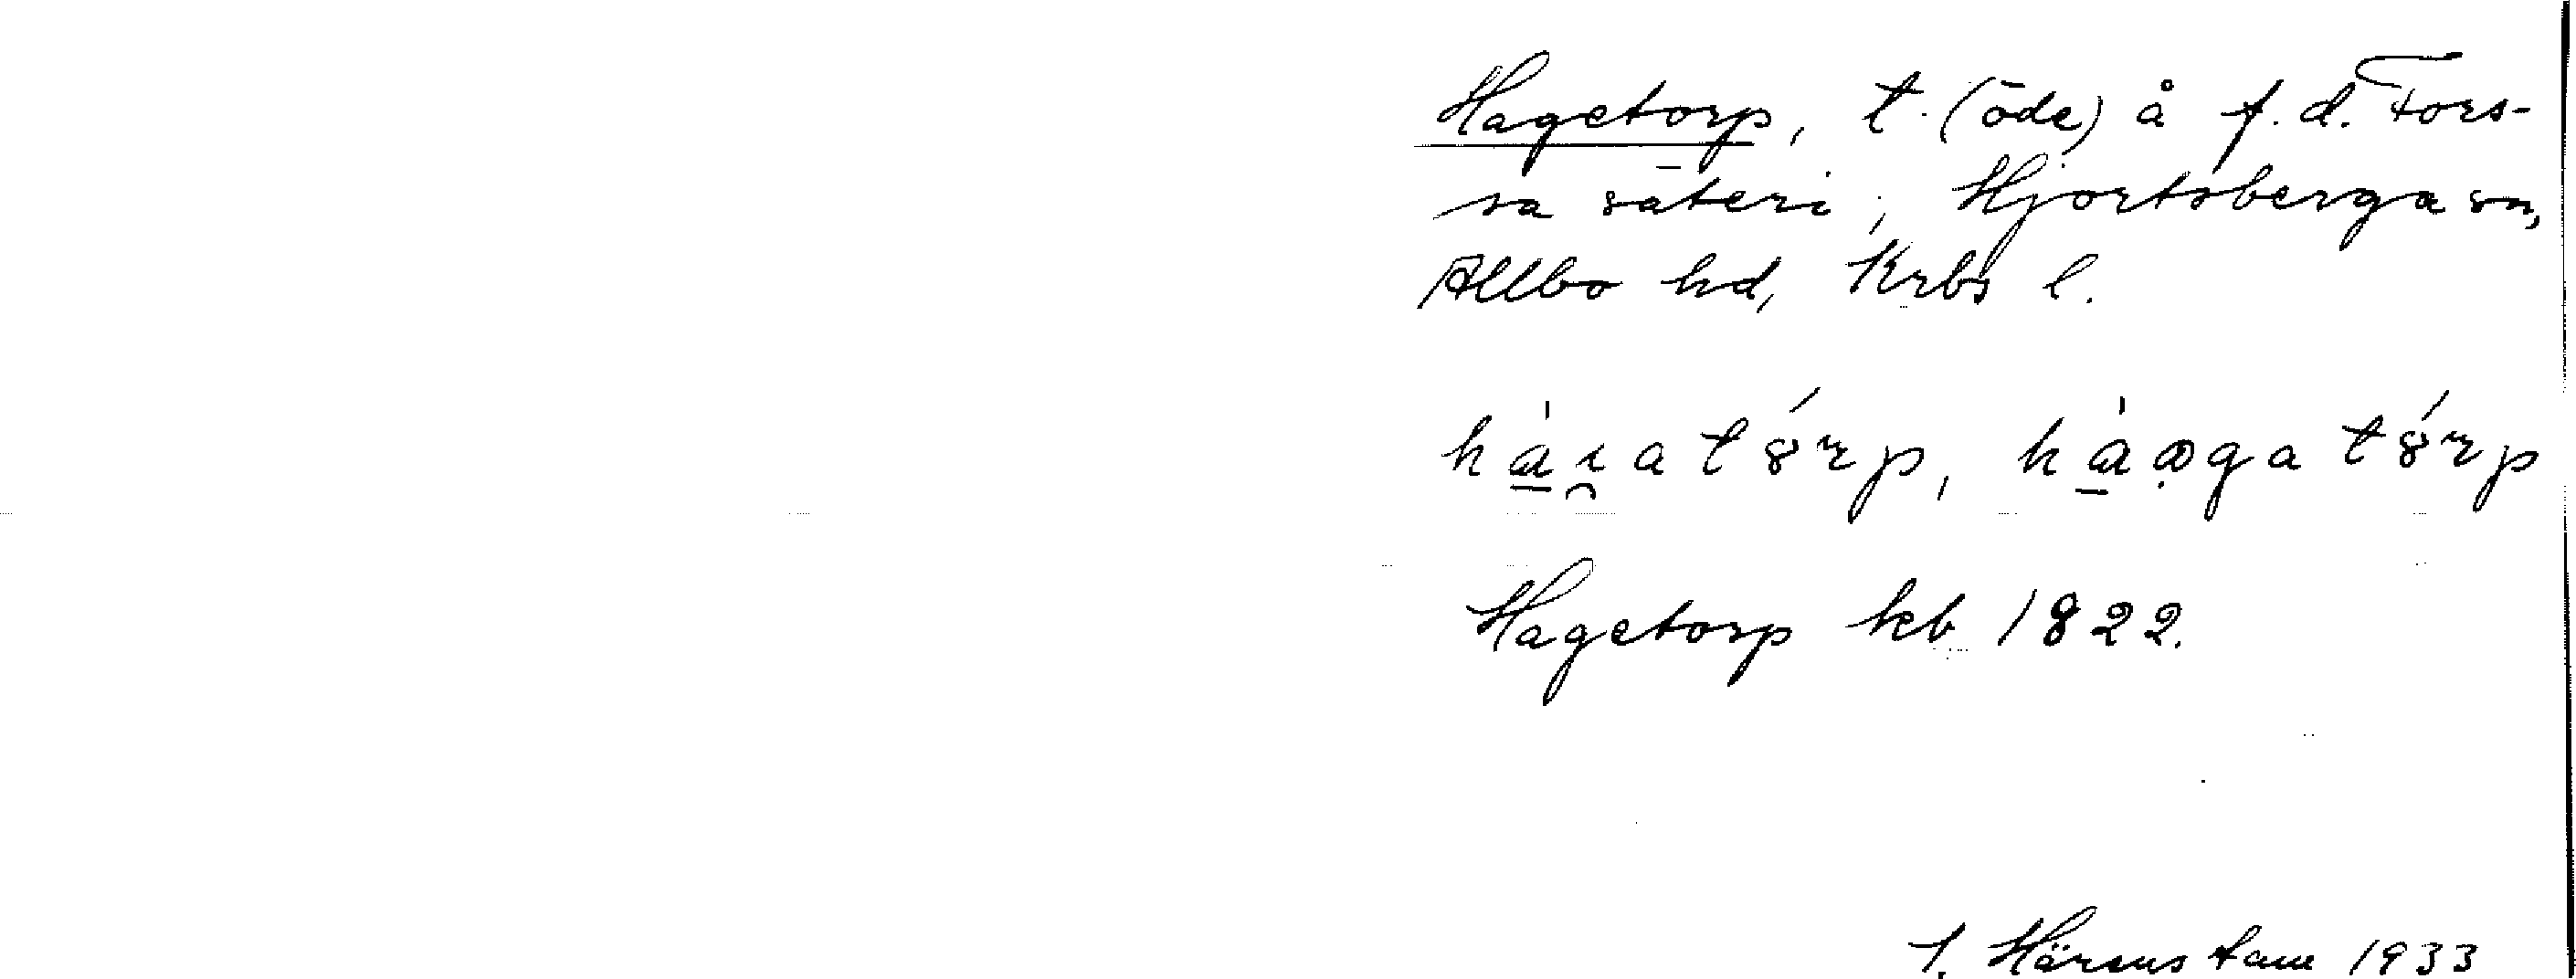 Hagetorp, t. (öde) å f.d. Fors-
sa säteri, Hjortsberga sn,
Allbo hd, Krbs l.
hàıatórp, hàaga tórp
Hagetorp kb 1822.
1933